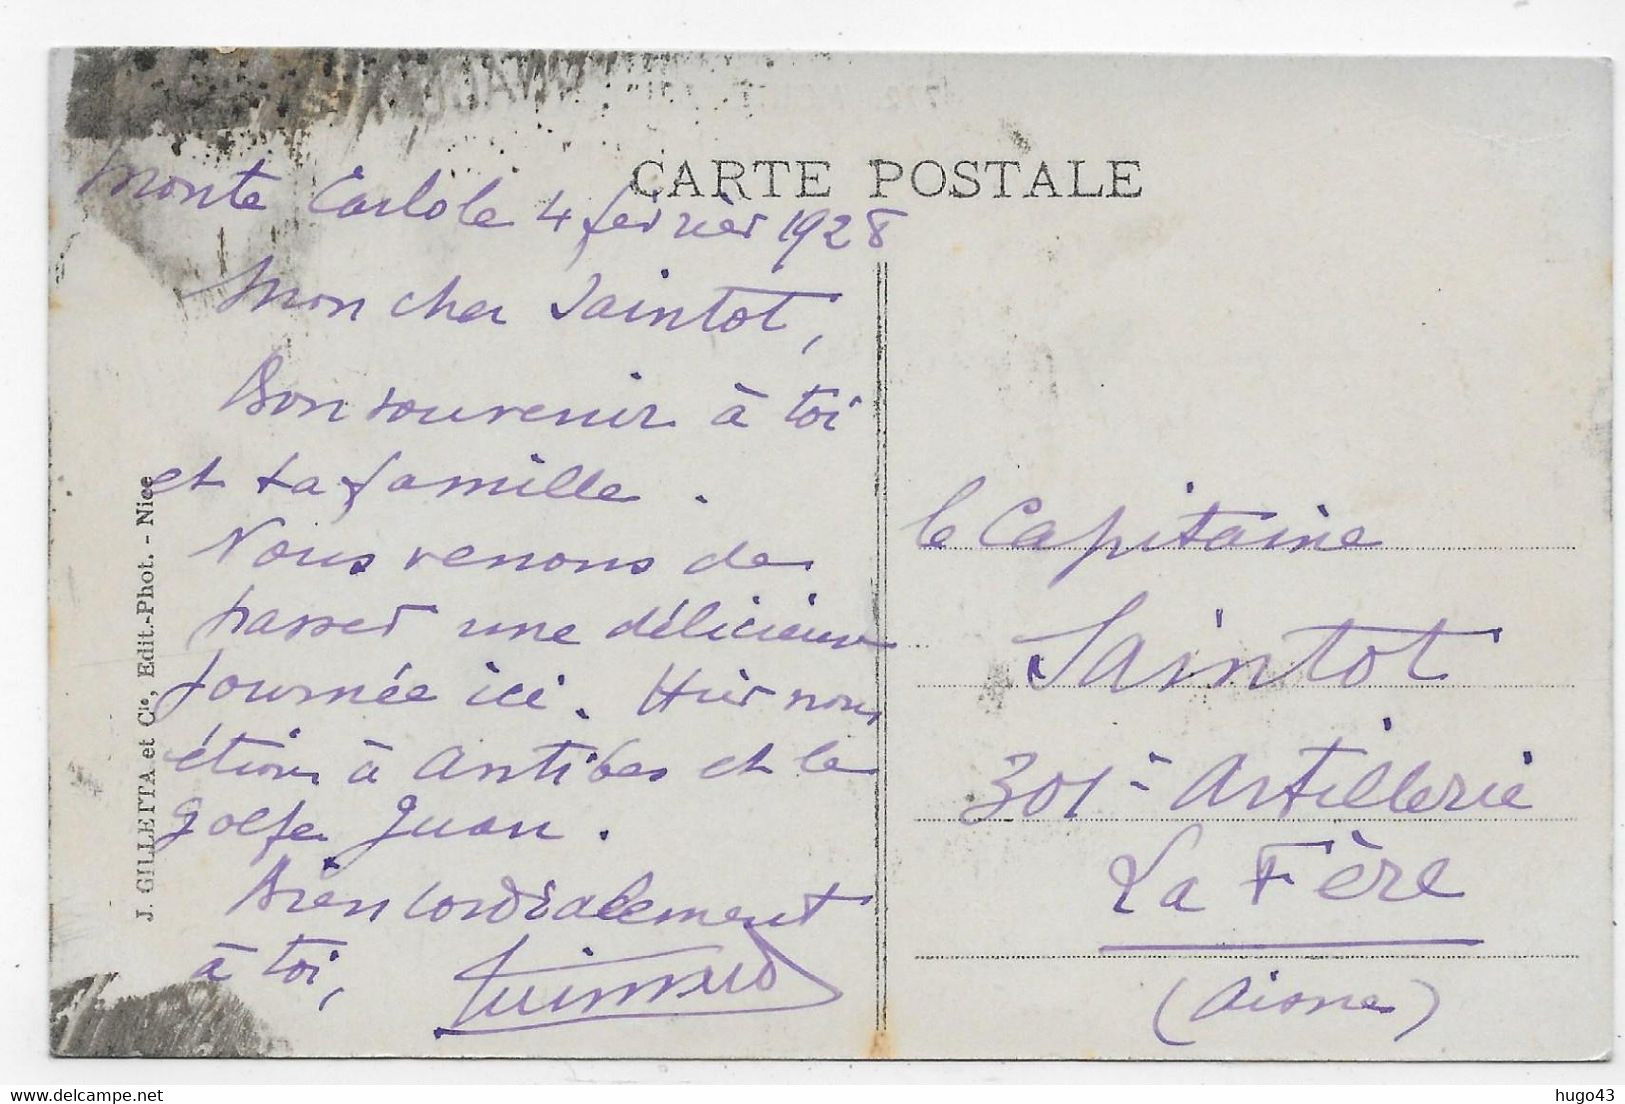 CARTE POSTALE
Monte Carlo le 4 fevrièr 1928
Mon cher Saintot,
Bon souvenir à toi
et ta famille.
Nous venons de
passer une délicieuse
journée ici. Hier nous
étions à Antibes et le
golfe Juan.
Bien cordialement
à toi,
J. GILLETTA et Cie, Edit.-Phot. - Nice
le Capitaine
Saintot
301e Artillerie
La Fère
(Aisne)
hugo43